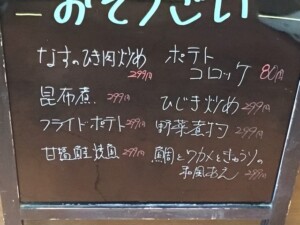 おそうざい
なすのひき肉炒め
299円
ポテト
コロッケ 80円
昆布煮 299円
ひじき炒め 299円
フライドポテト 299円
野菜煮物 299円
甘塩鮭焼魚 299円
鯛とワカメときゅうりの
和風あえ 299円